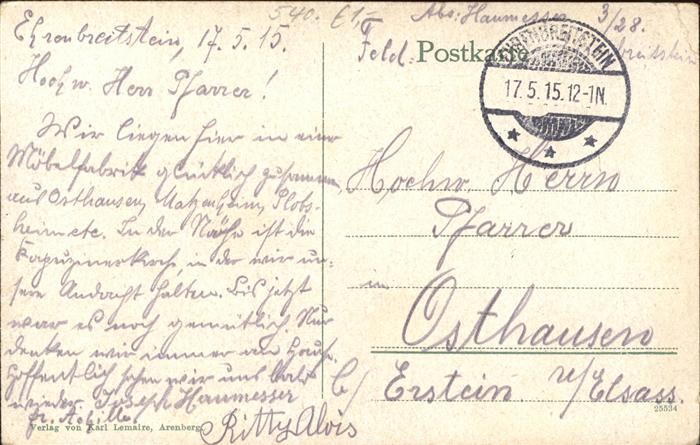 540. €1.-
Abs: Haumesser 3/28.
Ehrenbreitstein, 17.5.15.
Feld Postkarte
EHRENBREITSTEIN
17.5.15.12-1N.
Hochw. Herr Pfarrer!
Wir liegen hier in einer
Möbelfabrik glücklich zusammen,
aus Osthausen, Matzenheim, Plobs-
heim etc. In der Nähe ist die
Kapuzinerkirche, in der wir un-
sere Andacht halten. Bis jetzt
war es noch gemütlich. Nur
denken wir immer an Hause.
Hoffentlich sehen wir uns bald
wieder. Joseph Haumesser
fr. Achilles
Ritty Alois
Hochw. Herrn
Pfarrer
in
Osthausen
b/ Erstein. u/Elsass.
25534
Verlag von Karl Lemaire, Arenberg.